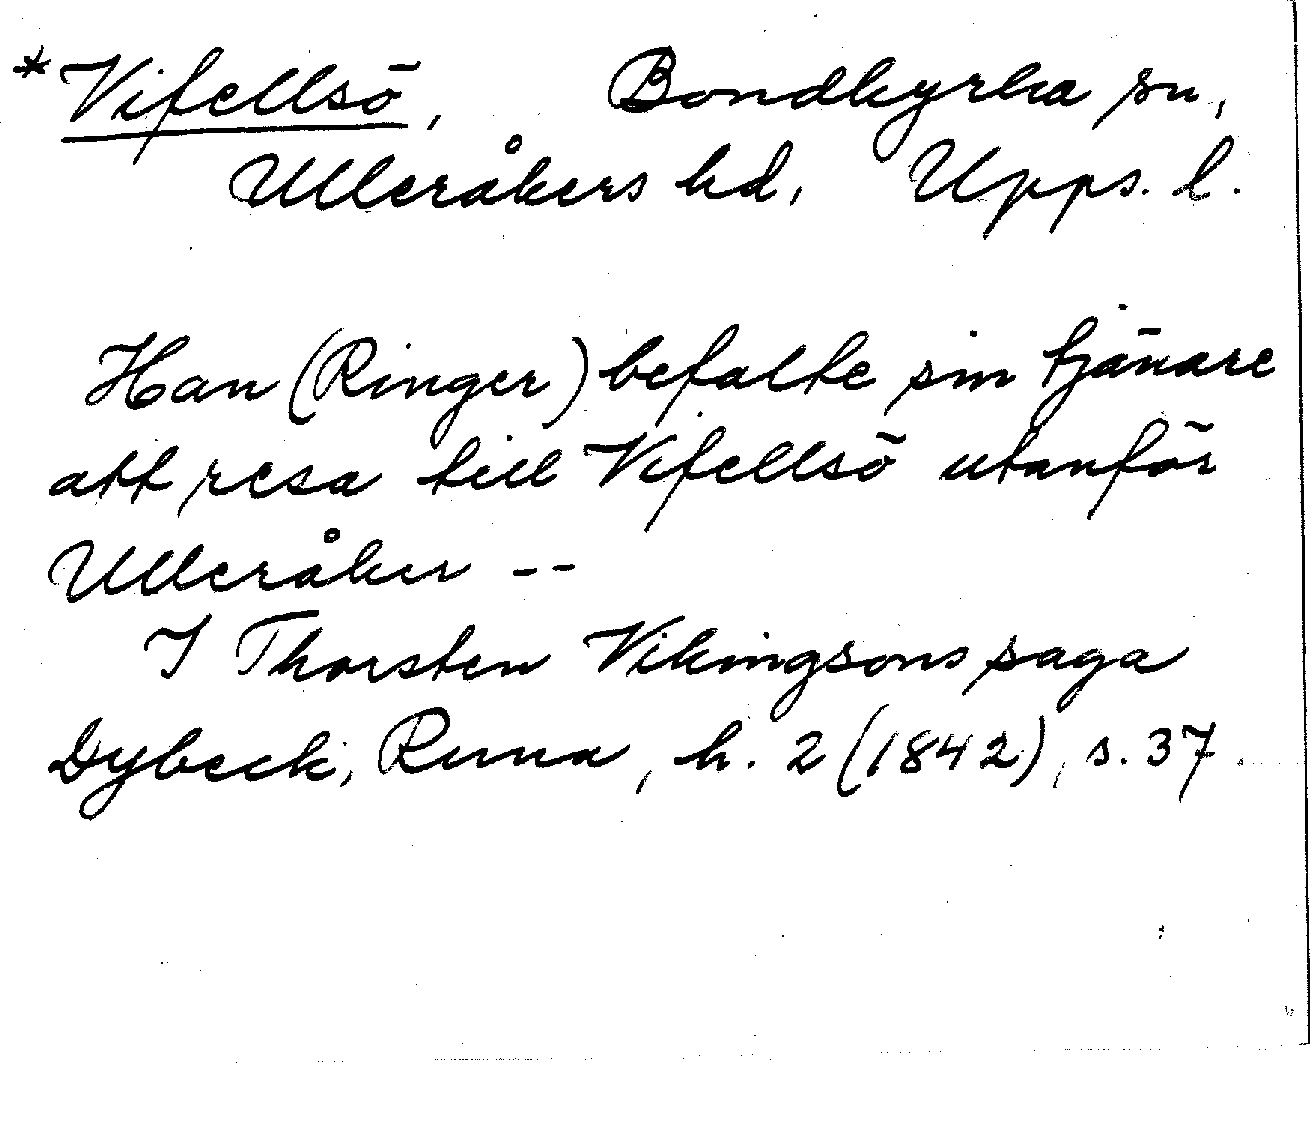 *Vifellsö, Bondkyrka sn,
Ulleråkers hd, Upps. l.
Han (Ringer) befalte sin tjänare
att resa till Vifellsö utanför
Ulleråker --
I Thorsten Vikingsons saga
Dybeck, Runa, h. 2 (1842), s. 37.